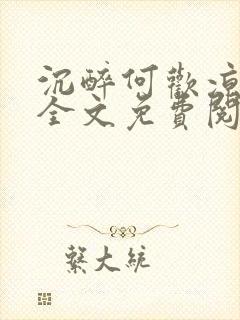 沉醉何歡涼
全文免費閱
繫大統